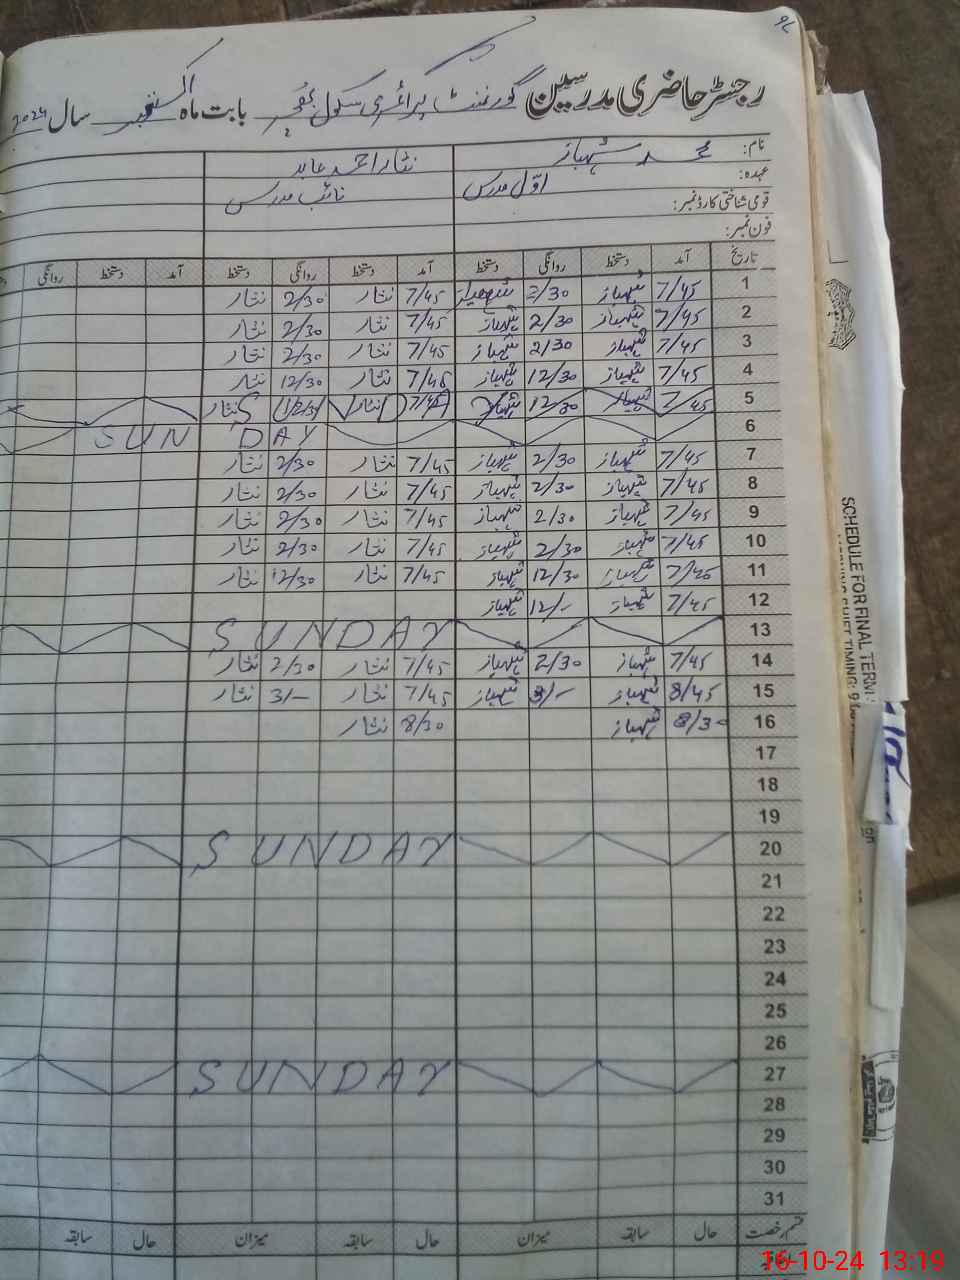 رجسٹر حاضری مدرسین گورنمنٹ پرائمری سکول بابت ماہ اکتوبر سال 2024
نام: محمد شہباز نثار احمد عابد
عہدہ: اوّل مدرس نائب مدرس
قومی شناختی کارڈ نمبر:
فون نمبر:
تاریخ آمد دستخط روانگی دستخط آمد دستخط روانگی دستخط آمد دستخط روانگی
1 7/45 شہباز 2/30 شہباز 7/45 نثار 2/30 نثار
2 7/45 شہباز 2/30 شہباز 7/45 نثار 2/30 نثار
3 7/45 شہباز 2/30 شہباز 7/45 نثار 2/30 نثار
4 7/45 شہباز 12/30 شہباز 7/45 نثار 12/30 نثار
5 7/45 شہباز 12/30 شہباز 7/45 نثار 12/30 نثار
6 SUN DAY
7 7/45 شہباز 2/30 شہباز 7/45 نثار 2/30 نثار
8 7/45 شہباز 2/30 شہباز 7/45 نثار 2/30 نثار
9 7/45 شہباز 2/30 شہباز 7/45 نثار 2/30 نثار
10 7/45 شہباز 2/30 شہباز 7/45 نثار 2/30 نثار
11 7/45 شہباز 12/30 شہباز 7/45 نثار 12/30 نثار
12 7/45 شہباز 12/- شہباز
13 SUNDAY
14 7/45 شہباز 2/30 شہباز 7/45 نثار 2/30 نثار
15 8/45 شہباز 3/- شہباز 7/45 نثار 3/- نثار
16 8/30 شہباز 8/30 نثار
17
18
19
20 SUNDAY
21
22
23
24
25
26
27 SUNDAY
28
29
30
31
قسم رخصت حال سابقہ میزان حال سابقہ میزان حال سابقہ
SCHEDULE FOR FINAL TERM
SHIFT TIMING: 9
16-10-24 13:19